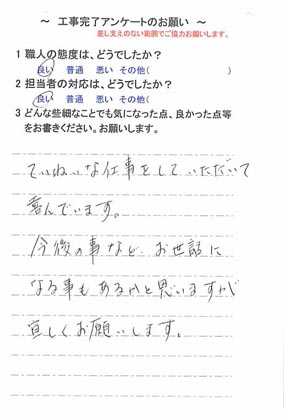 ～ 工事完了アンケートのお願い ～
差し支えのない範囲でご協力お願いします。
1 職人の態度は、どうでしたか？
良い 普通 悪い その他( )
2 担当者の対応は、どうでしたか？
良い 普通 悪い その他( )
3 どんな些細なことでも気になった点、良かった点等
をお書きください。お願いします。
ていねいな仕事をしていただいて
喜んでいます。
今後の事など、お世話に
なる事もあるかと思いますが
宜しくお願いします。